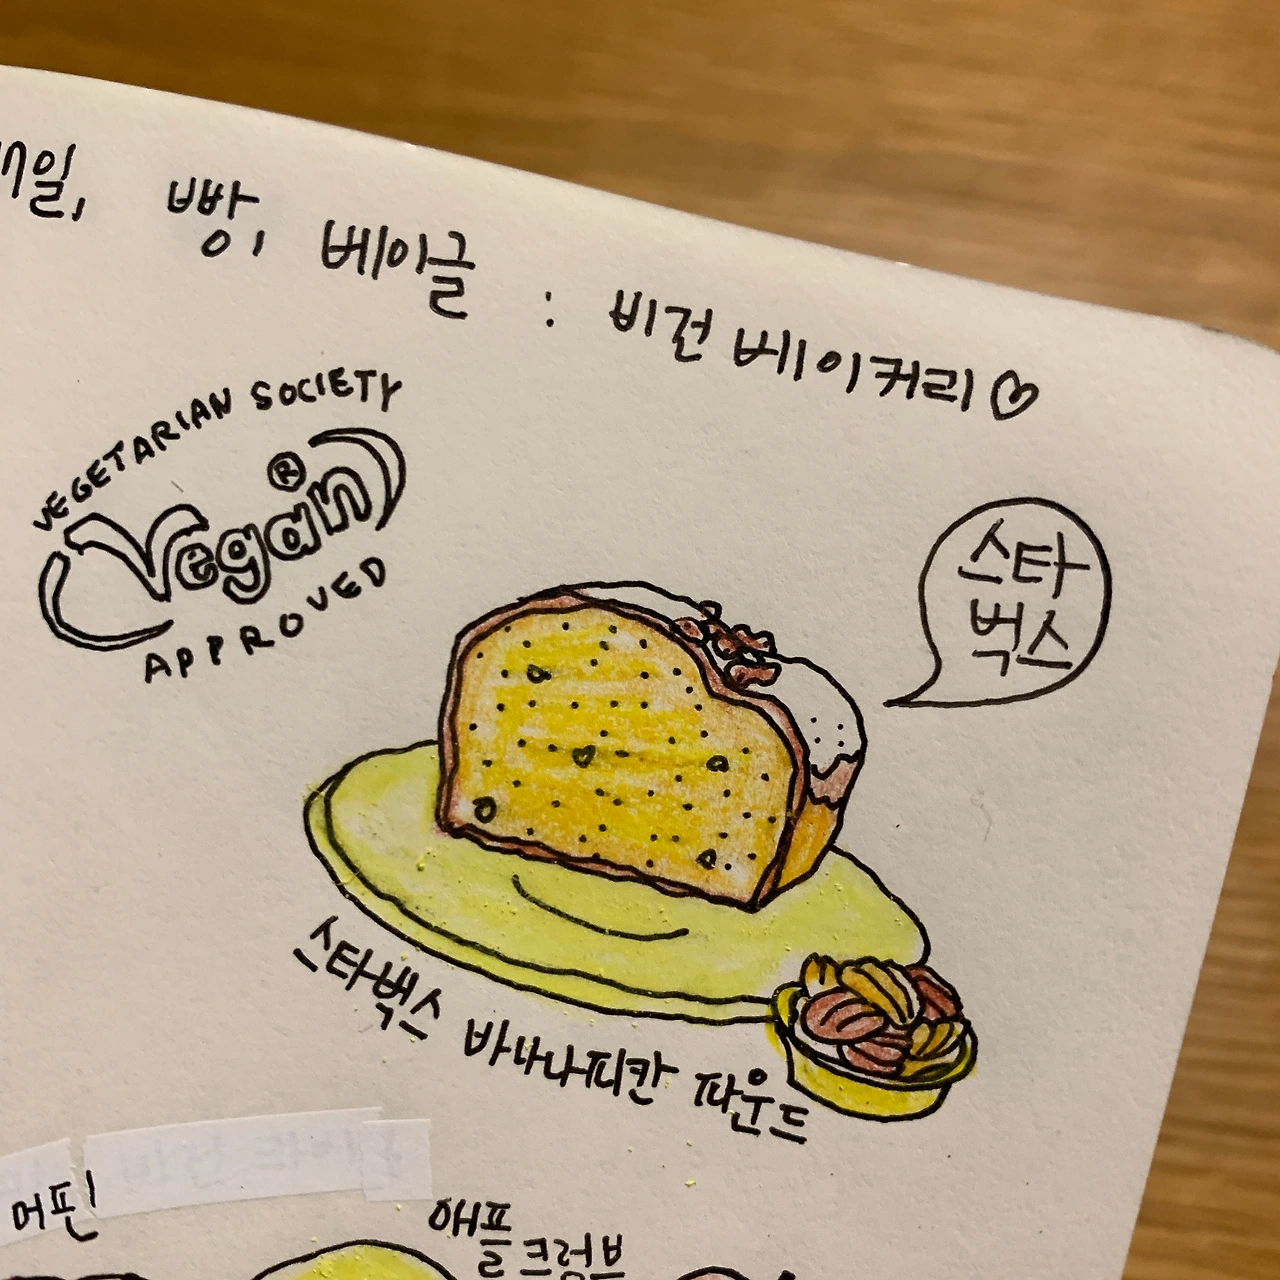 매일, 빵, 베이글 : 비건 베이커리♡
VEGETARIAN SOCIETY
Vegan®
APPROVED
스타
벅스
스타벅스 바나나피칸 파운드
머핀!
애플
크럼브